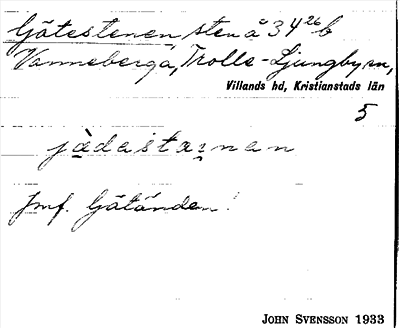 Gätestenen, sten å 34 26 b
Vanneberga, Trolle-Ljungby sn,
Villands hd, Kristianstads län
5
jädastaɪnan
Jmf. Gätänden!
JOHN SVENSSON 1933